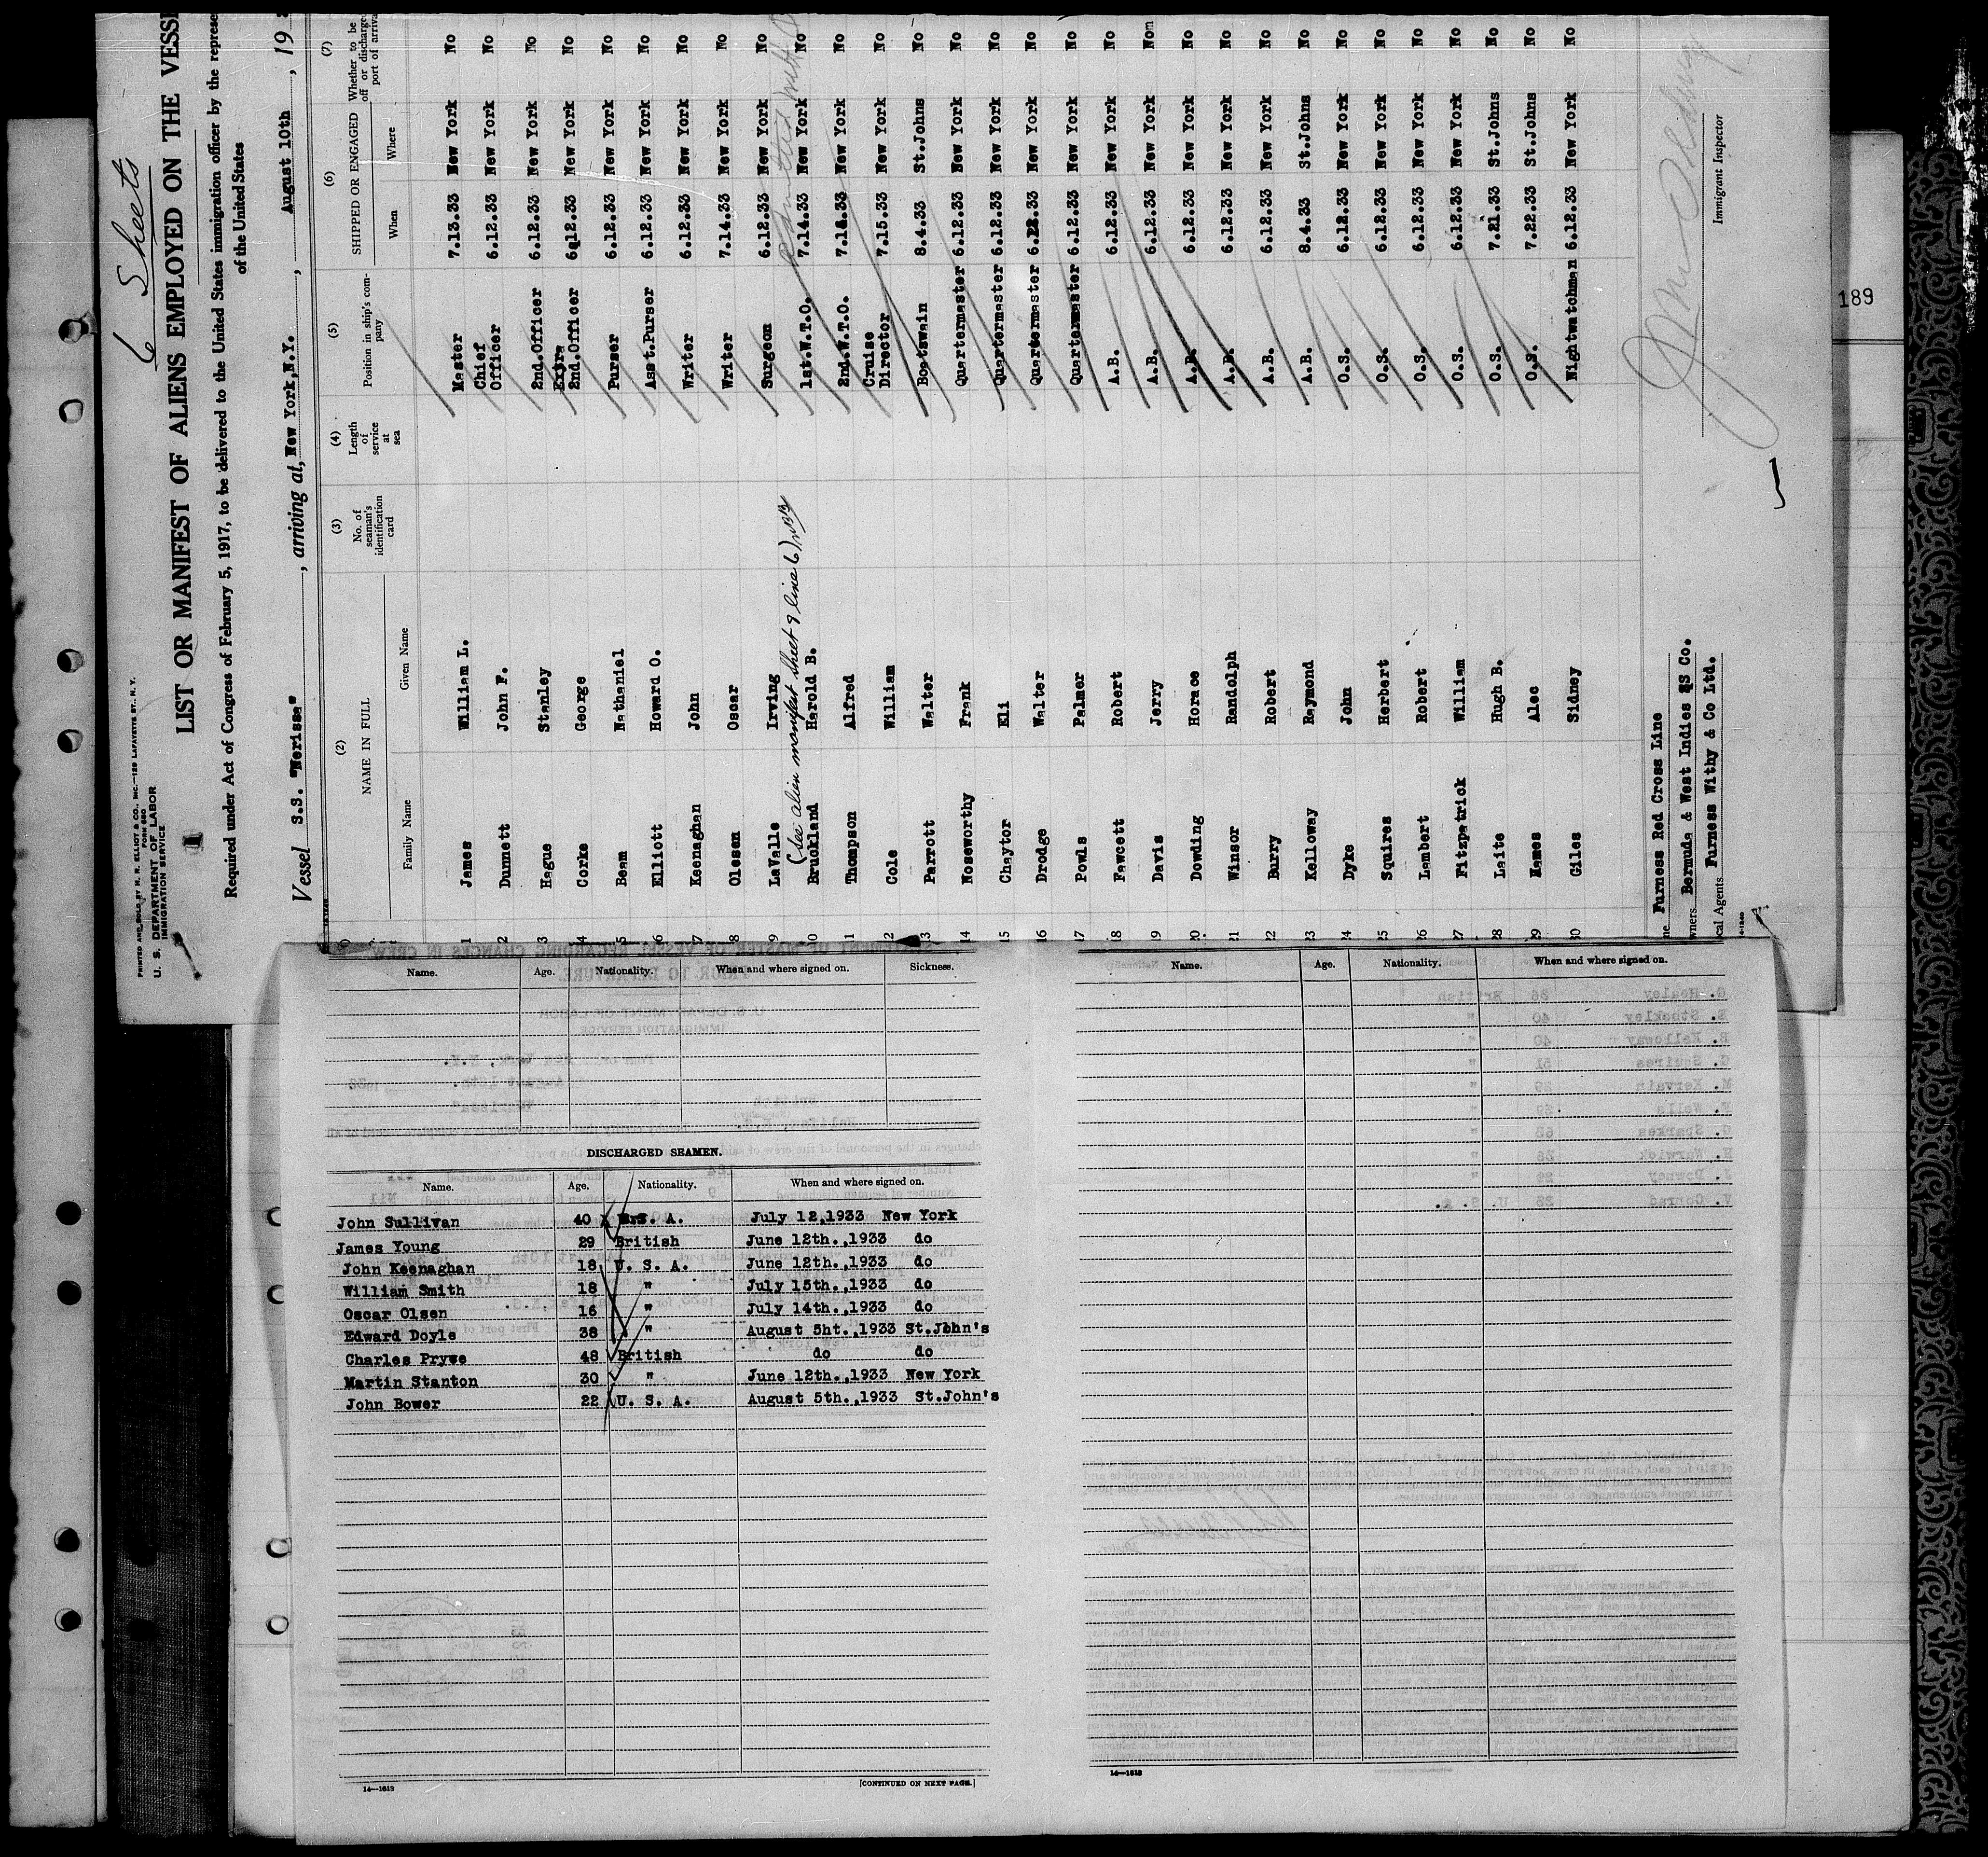 6 Sheets
PRINTED AND SOLD BY M. R. ELLIOT & CO., INC.—129 LAFAYETTE ST., N. Y.
FORM 680
U. S. DEPARTMENT OF LABOR
IMMIGRATION SERVICE
1
LIST OR MANIFEST OF ALIENS EMPLOYED ON THE VESSE
Required under Act of Congress of February 5, 1917, to be delivered to the United States immigration officer by the represe
of the United States
Vessel S.S. "Nerissa", arriving at, New York, N.Y., August 10th, 19
(2) (3) (4) (5) (6) (7)
NAME IN FULL No. of seaman's identification card Length of service at sea Position in ship's company SHIPPED OR ENGAGED Whether to be off or discharge port of arriva
Family Name Given Name When Where
1 James William L. Master 7.13.33 New York No
2 Dunnett John F. Chief Officer 6.12.33 New York No
3 Hague Stanley 2nd.Officer 6.12.33 New York No
4 Corke George Extra 2nd.Officer 6.12.33 New York No
5 Beam Nathaniel Purser 6.12.33 New York No
6 Elliott Howard O. Asst.Purser 6.12.33 New York No
7 Keenaghan John Writer 6.12.33 New York No
8 Olesen Oscar Writer 7.14.33 New York No
9 LaValle Irving Surgeon 6.12.33 New York No
(See alien manifest sheet 9 line 6)
10 Bruckland Harold B. 1st.W.T.O. 7.14.33 New York No
11 Thompson Alfred 2nd.W.T.O. 7.14.33 New York No
12 Cole William Cruise Director 7.15.33 New York No
13 Parrott Walter Boatswain 8.4.33 St.Johns No
14 Noseworthy Frank Quartermaster 6.12.33 New York No
15 Chaytor Eli Quartermaster 6.12.33 New York No
16 Drodge Walter Quartermaster 6.22.33 New York No
17 Powls Palmer Quartermaster 6.12.33 New York No
18 Fawcett Robert A.B. 6.12.33 New York No
19 Davis Jerry A.B. 6.12.33 New York Nom
20 Dowding Horace A.B. 6.12.33 New York No
21 Winsor Randolph A.B. 6.12.33 New York No
22 Barry Robert A.B. 6.12.33 New York No
23 Kelloway Raymond A.B. 8.4.33 St.Johns No
24 Dyke John O.S. 6.12.33 New York No
25 Squires Herbert O.S. 6.12.33 New York No
26 Lambert Robert O.S. 6.12.33 New York No
27 Fitzpatrick William O.S. 6.12.33 New York No
28 Laite Hugh B. O.S. 7.21.33 St.Johns No
29 Eames Alec O.S. 7.22.33 St.Johns No
30 Giles Sidney Nightwatchman 6.12.33 New York No
ne Furness Red Cross Line
wners Bermuda & West Indies SS Co.
cal Agents Furness Withy & Co Ltd.
Immigrant Inspector
189
Name. Age. Nationality. When and where signed on. Sickness.
DISCHARGED SEAMEN.
Name. Age. Nationality. When and where signed on.
John Sullivan 40 U.S. A. July 12,1933 New York
James Young 29 British June 12th.,1933 do
John Keenaghan 18 U. S. A. June 12th.,1933 do
William Smith 18 " July 15th.,1933 do
Oscar Olsen 16 " July 14th.,1933 do
Edward Doyle 38 " August 5ht.,1933 St.John's
Charles Prywe 48 British do do
Martin Stanton 30 " June 12th.,1933 New York
John Bower 22 U. S. A. August 5th.,1933 St.John's
14—1613
[CONTINUED ON NEXT PAGE.]
Name. Age. Nationality. When and where signed on.
14—1613